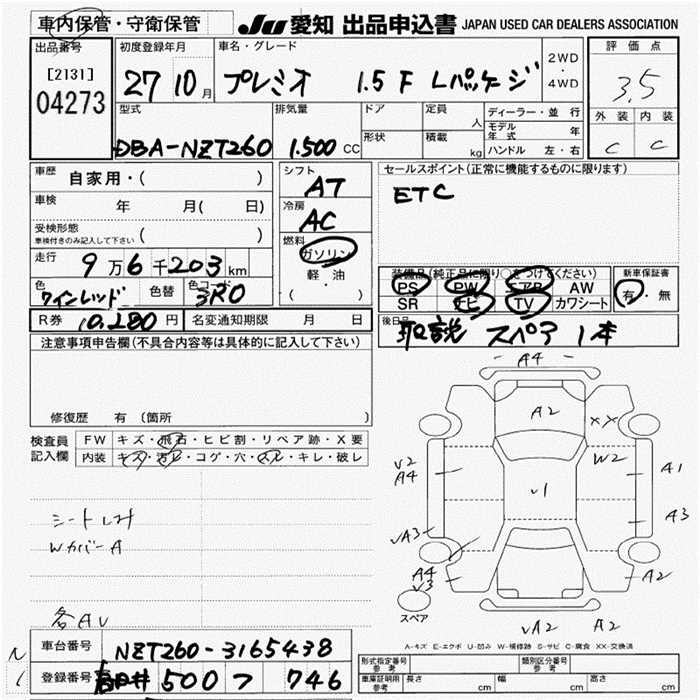 車内保管・守衛保管
JU 愛知 出品申込書 JAPAN USED CAR DEALERS ASSOCIATION
出品番号
[2131]
04273
初度登録年月
27 10月
車名・グレード
プレミオ 1.5 F Lパッケージ
2WD
・
4WD
評価点
3.5
外装 内装
C C
型式
DBA-NZT260
排気量
1.500 CC
ドア
形状
定員 人
積載 kg
ディーラー・並行
モデル年式 年
ハンドル 左・右
車歴 自家用・( )
車検 年 月( 日)
受検形態
車検付きのみ記入して下さい ( )
走行 9万6千203km
色 ワインレッド 色替 色コード 3R0
R券 10,280円 名変通知期限 月 日
シフト
AT
冷房
AC
燃料
ガソリン
軽・油
( )
セールスポイント(正常に機能するものに限ります)
ETC
装備品(純正品に限り○をつけてください)
PS PW エアB AW
SR ナビ TV カワシート
新車保証書
有・無
後日品
取説 スペア 1本
注意事項申告欄(不具合内容等は具体的に記入して下さい)
修復歴 有 (箇所
検査員
記入欄
FW キズ・飛石・ヒビ割・リペア跡・X要
内装 キズ・汚レ・コゲ・穴・スレ・キレ・破レ
シートしみ
WカバーA
各AU
A4
A2
XX
V2
A4
W2
A1
√1
A3
√A3
A4
V3
A2
スペア
√A2
A2
A-キズ E-エクボ U-凹み W-補修跡 S-サビ C-腐食 XX-交換済
車台番号 NZT260-3165438
登録番号 500 フ 746
型式指定番号
参考
類別区分番号
参考
車庫証明用
参考
長さ cm 幅 cm 高さ cm